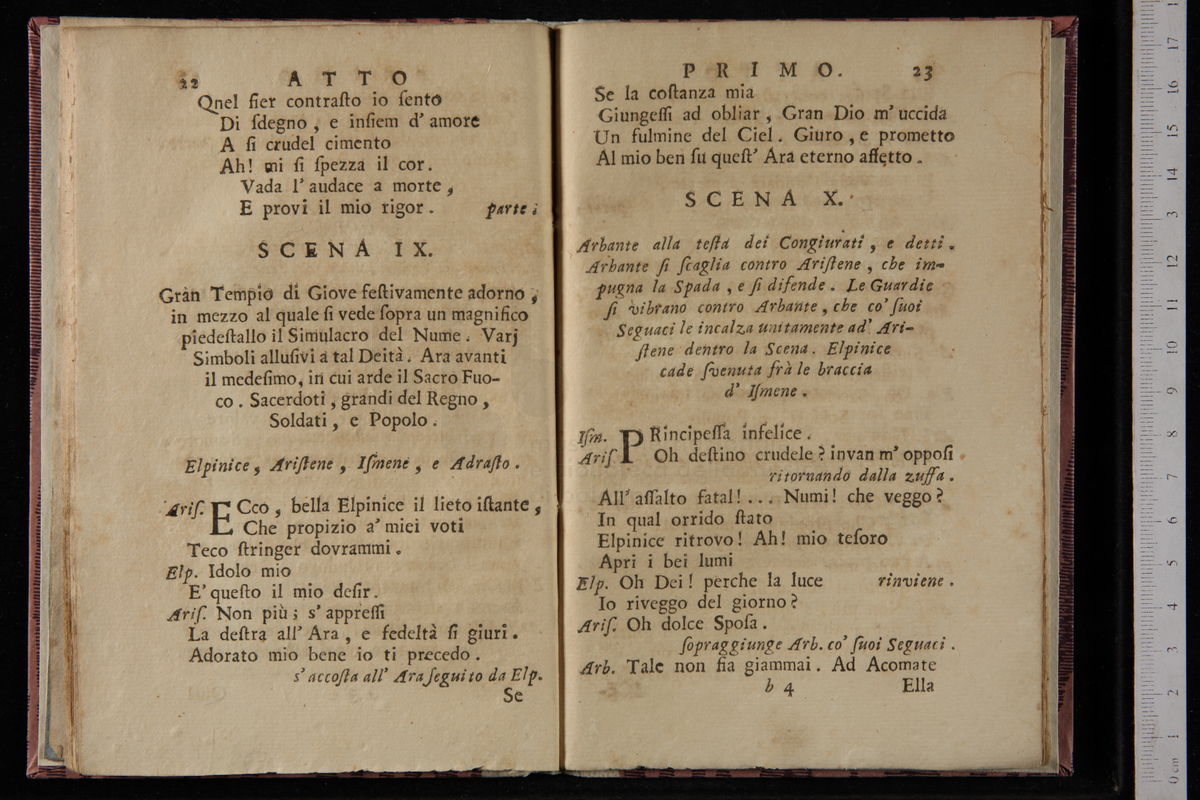 22 ATTO
Qnel fier contraſto io ſento
Di ſdegno , e inſiem d' amore
A ſi crudel cimento
Ah! mi ſi ſpezza il cor.
Vada l' audace a morte ,
E provi il mio rigor. parte.
SCENA IX.
Gran Tempio di Giove feſtivamente adorno ,
in mezzo al quale ſi vede ſopra un magnifico
piedeſtallo il Simulacro del Nume. Varj
Simboli alluſivi a tal Deità. Ara avanti
il medeſimo, in cui arde il Sacro Fuo-
co. Sacerdoti, grandi del Regno ,
Soldati, e Popolo.
Elpinice, Ariſtene, Iſmene, e Adraſto.
Ariſ. ECco, bella Elpinice il lieto iſtante ,
Che propizio a' miei voti
Teco ſtringer dovrammi.
Elp. Idolo mio
E' queſto il mio deſir.
Ariſ. Non più; s' appreſſi
La deſtra all' Ara, e fedeltà ſi giuri.
Adorato mio bene io ti precedo.
s' accoſta all' Ara ſeguito da Elp.
Se
PRIMO. 23
Se la coſtanza mia
Giungeſſi ad obliar, Gran Dio m' uccida
Un fulmine del Ciel. Giuro, e prometto
Al mio ben ſu queſt' Ara eterno affetto.
SCENA X.
Arbante alla teſta dei Congiurati, e detti.
Arbante ſi ſcaglia contro Ariſtene, che im-
pugna la Spada, e ſi difende. Le Guardie
ſi vibrano contro Arbante, che co' ſuoi
Seguaci le incalza unitamente ad' Ari-
ſtene dentro la Scena. Elpinice
cade ſvenuta frà le braccia
d' Iſmene.
Iſm. PRincipeſſa infelice.
Ariſ. Oh deſtino crudele? invan m' oppoſi
ritornando dalla zuffa.
All' aſſalto fatal! ... Numi! che veggo?
In qual orrido ſtato
Elpinice ritrovo! Ah! mio teſoro
Apri i bei lumi
Elp. Oh Dei! perche la luce rinviene.
Io riveggo del giorno?
Ariſ. Oh dolce Spoſa.
ſopraggiunge Arb. co' ſuoi Seguaci.
Arb. Tale non fia giammai. Ad Acomate
b 4 Ella
0 cm 1 2 3 4 5 6 7 8 9 10 11 12 13 14 15 16 17